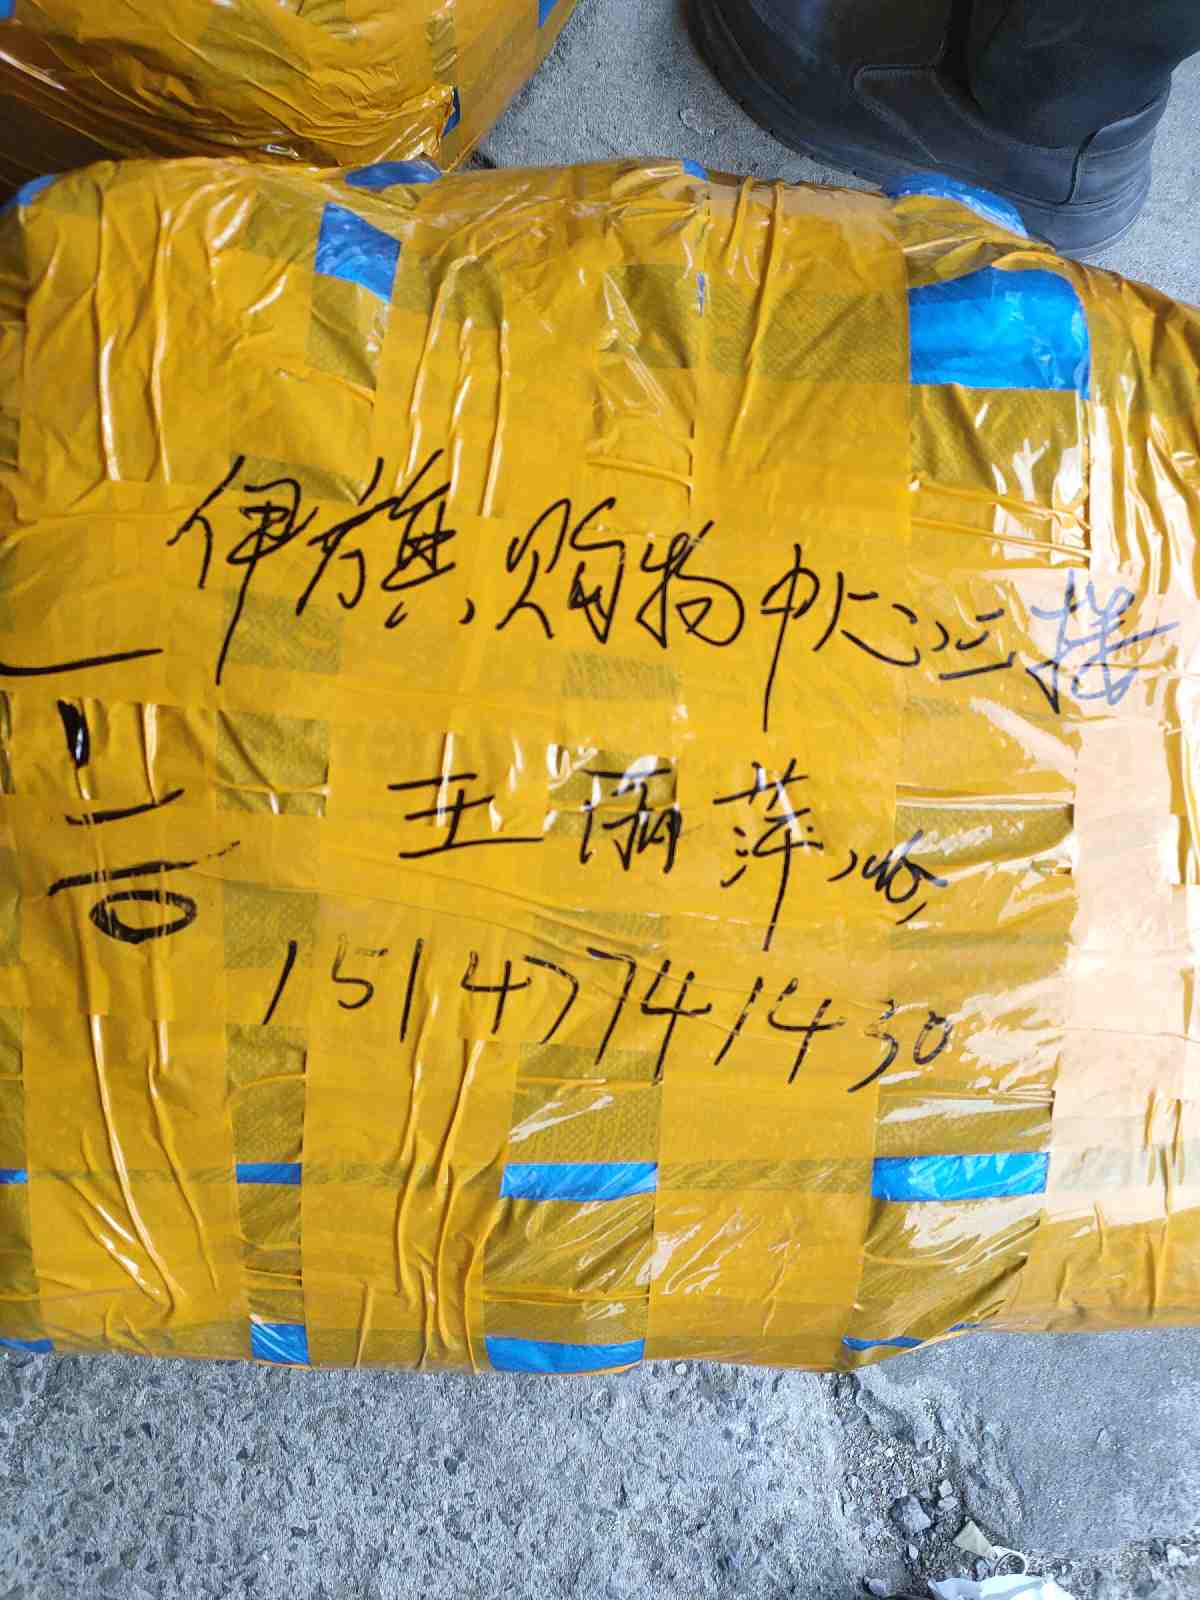 伊旗购物中心二楼
王丽萍收
15147741430